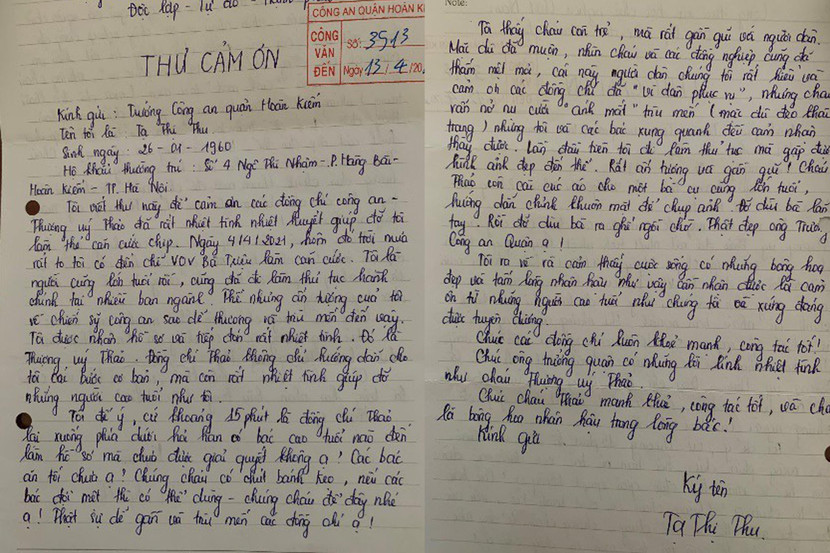 Độc lập - Tự do - Hạnh
CÔNG AN QUẬN HOÀN KI
CÔNG VĂN ĐẾN
Số: 3913
Ngày 13/4/20
THƯ CẢM ƠN
Kính gửi : Trưởng Công an quận Hoàn Kiếm
Tên tôi là Tạ Thị Thu.
Sinh ngày : 26 - 01 - 1960
Hộ khẩu thường trú : Số 4 Ngô Thì Nhậm - P. Hàng Bài -
Hoàn Kiếm - TP. Hà Nội
Tôi viết thư này để cảm ơn các đồng chí công an -
Thượng uý Thảo đã rất nhiệt tình nhiệt huyết giúp đỡ tôi
làm thẻ căn cước chip. Ngày 4/4/2021, hôm đó trời mưa
rất to tôi có đến chỗ VOV Bà Triệu làm căn cước. Tôi là
người cũng lớn tuổi rồi, cũng đã đi làm thủ tục hành
chính tại nhiều ban ngành. Thế nhưng ấn tượng của tôi
về chiến sỹ công an sao dễ thương và trìu mến đến vậy.
Tôi được nhận hồ sơ và tiếp đón rất nhiệt tình. Đó là
Thượng uý Thảo. Đồng chí Thảo không chỉ hướng dẫn cho
tôi các bước cơ bản, mà còn rất nhiệt tình giúp đỡ
những người cao tuổi như tôi.
Tôi để ý, cứ khoảng 15 phút là đồng chí Thảo
lại xuống phía dưới hỏi han có bác cao tuổi nào đến
làm hồ sơ mà chưa được giải quyết không ạ! Các bác
ăn tối chưa ạ! Chúng cháu có chút bánh kẹo, nếu các
bác đói mệt thì có thể dùng - chúng cháu để đây nhé
ạ! Thật sự dễ gần và trìu mến các đồng chí ạ!
Note:
Tôi thấy cháu còn trẻ, mà rất gần gũi với người dân.
Mặc dù đã muộn, nhìn cháu và các đồng nghiệp cũng đã
thấm mệt mỏi, cái này người dân chúng tôi rất hiểu và
cảm ơn các đồng chí đã "vì dân phục vụ", nhưng cháu
vẫn nở nụ cười "ánh mắt" trìu mến (mặc dù đeo khẩu
trang) nhưng tôi và các bác xung quanh đều cảm nhận
thấy được. Lần đầu tiên tôi đi làm thủ tục mà gặp được
hình ảnh đẹp đến thế. Rất ấn tượng và gần gũi! Cháu
Thảo còn cài cúc áo cho một bà cụ cũng lớn tuổi,
hướng dẫn chỉnh khuôn mặt để chụp ảnh dìu bà lăn
tay. Rồi đỡ dìu bà ra ghế ngồi chờ. Thật đẹp ông Trưởng
Công an Quận ạ!
Tôi ra về và cảm thấy cuộc sống có những bông hoa
đẹp và tấm lòng nhân hậu như vậy cần nhận được lời cảm
ơn từ những người cao tuổi như chúng tôi và xứng đáng
được tuyên dương.
Chúc các đồng chí luôn khoẻ mạnh, công tác tốt!
Chúc ông trưởng quận có những lời lính nhiệt tình
như cháu Thượng uý Thảo.
Chúc cháu Thảo mạnh khoẻ, công tác tốt, và
là bông hoa nhân hậu trong lòng bác!
Kính gửi
Ký tên
Tạ Thị Thu.